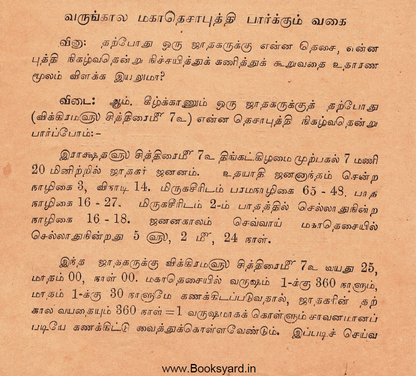 வருங்கால மகாதெசாபுத்தி பார்க்கும் வகை
வினு: தற்போது ஒரு ஜாதகருக்கு என்ன தெசை, என்ன
புத்தி நிகழ்வதென்று நிச்சயித்துக் கணித்துக் கூறுவதை உதாரண
மூலம் விளக்க இயலுமா?
விடை: ஆம். கீழ்க்காணும் ஒரு ஜாதகருக்குத் தற்போது
(விக்கிரம௵ சித்திரைமீ 7௳) என்ன தெசாபுத்தி நிகழ்வதென்று
பார்ப்போம்:-
இராக்ஷத௵ சித்திரைமீ 7௳ திங்கட்கிழமை முற்பகல் 7 மணி
20 மினிற்றில் ஜாதகர் ஜனனம். உதயாதி ஜனனாந்தம் சென்ற
நாழிகை 3, விநாடி 14. மிருகசீரிடம் பரமநாழிகை 65 - 48. பாத
நாழிகை 16 - 27. மிருகசீரிடம் 2-ம் பாதத்தில் செல்லாநின்ற
நாழிகை 16 - 18. ஜனனகாலம் செவ்வாய் மகாதெசையில்
செல்லாநின்றது 5 ௵, 2 மீ, 24 நாள்.
இந்த ஜாதகருக்கு விக்கிரம௵ சித்திரைமீ 7௳ வயது 25,
மாதம் 00, நாள் 00. மகாதெசையில் வருஷம் 1-க்கு 360 நாளும்,
மாதம் 1-க்கு 30 நாளுமே கணக்கிடப்படுவதால், ஜாதகரின் தற்
கால வயதையும் 360 நாள் = 1 வருஷமாகக் கொள்ளும் சாவனமானப்
படியே கணக்கிட்டு வைத்துக்கொள்ளவேண்டும். இப்படிச் செய்வ
www.Booksyard.in